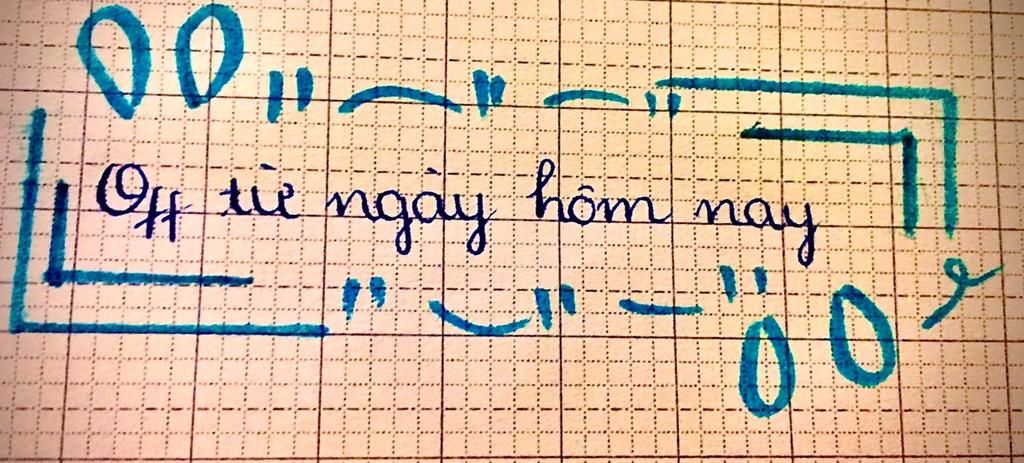 Off từ ngày hôm nay